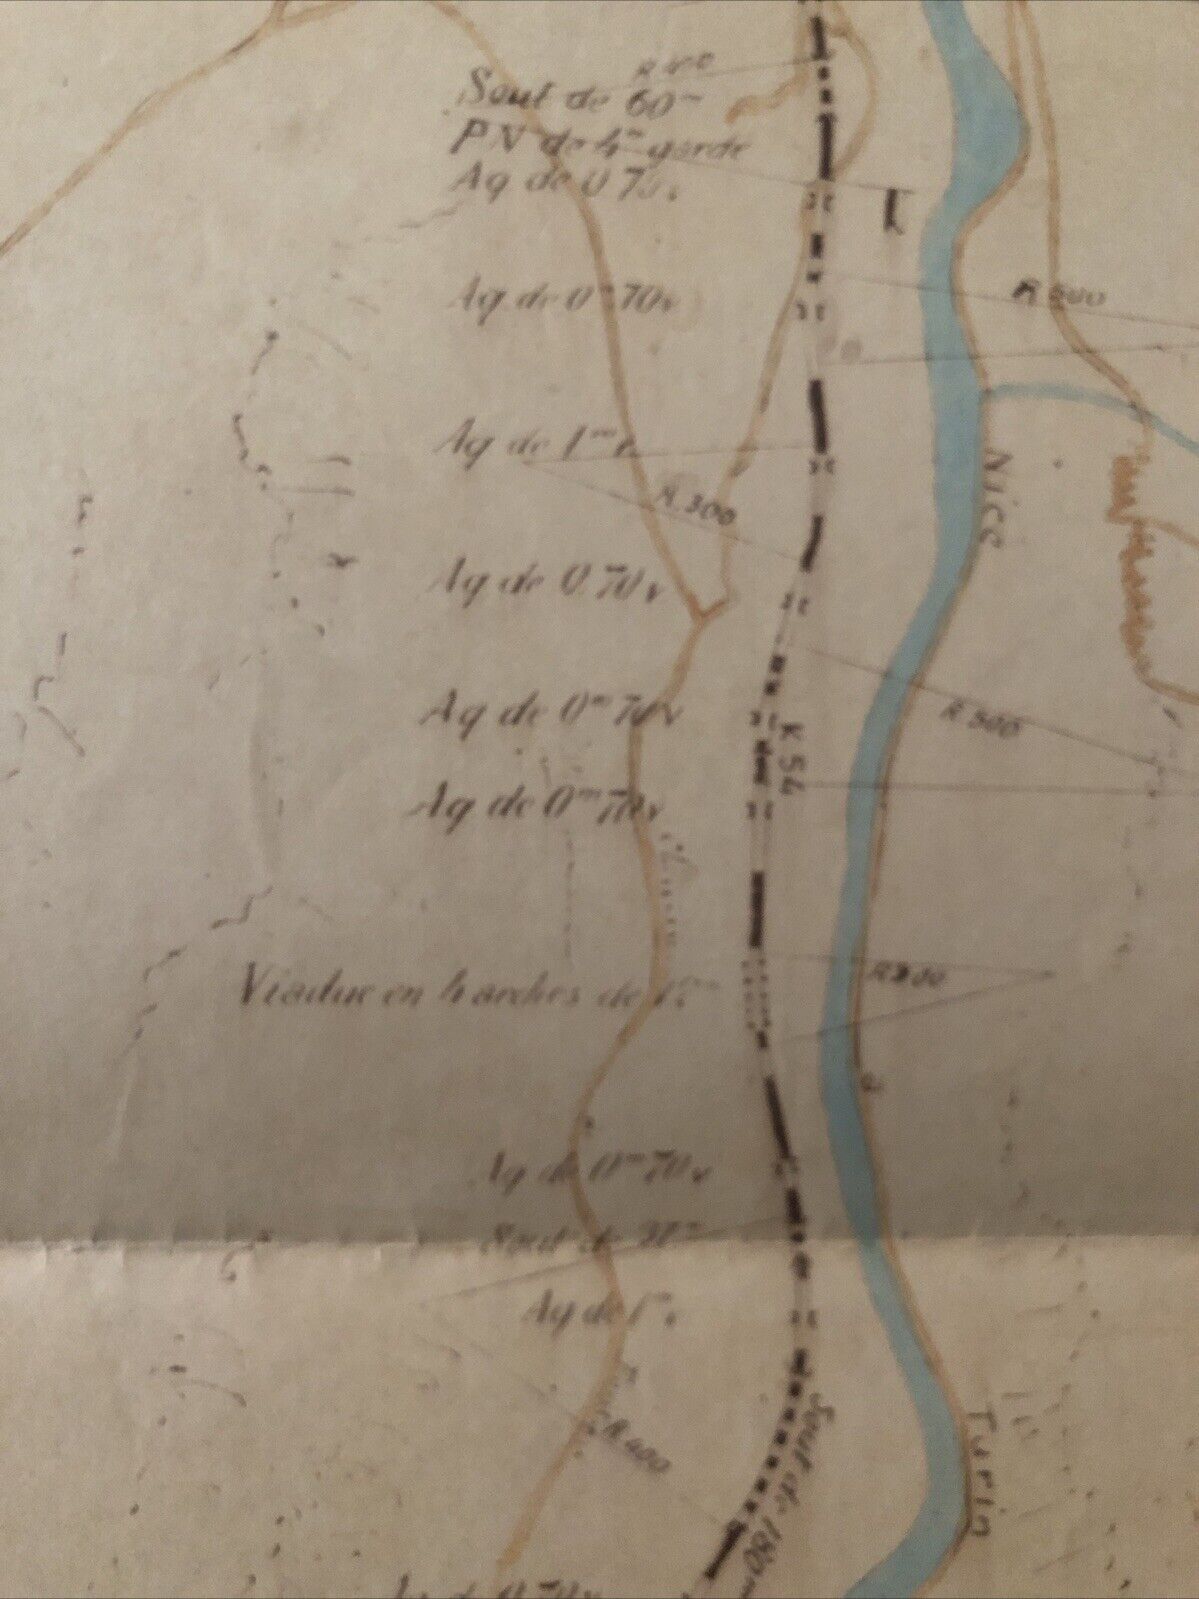 Sout de 60m
PN de 4m garde
Aq de 0.70v
Aq de 0m70v
R 500
Aq de 1m v
R.300
Nice
Aq de 0.70v
Aq de 0m70v
R 500
K 54
Aq de 0m70v
Viaduc en 4 arches de
Aq de 0m70v
Sout de
Aq de 1m v
R.400
Sout de 180m
Turin
Aq de 0.70v